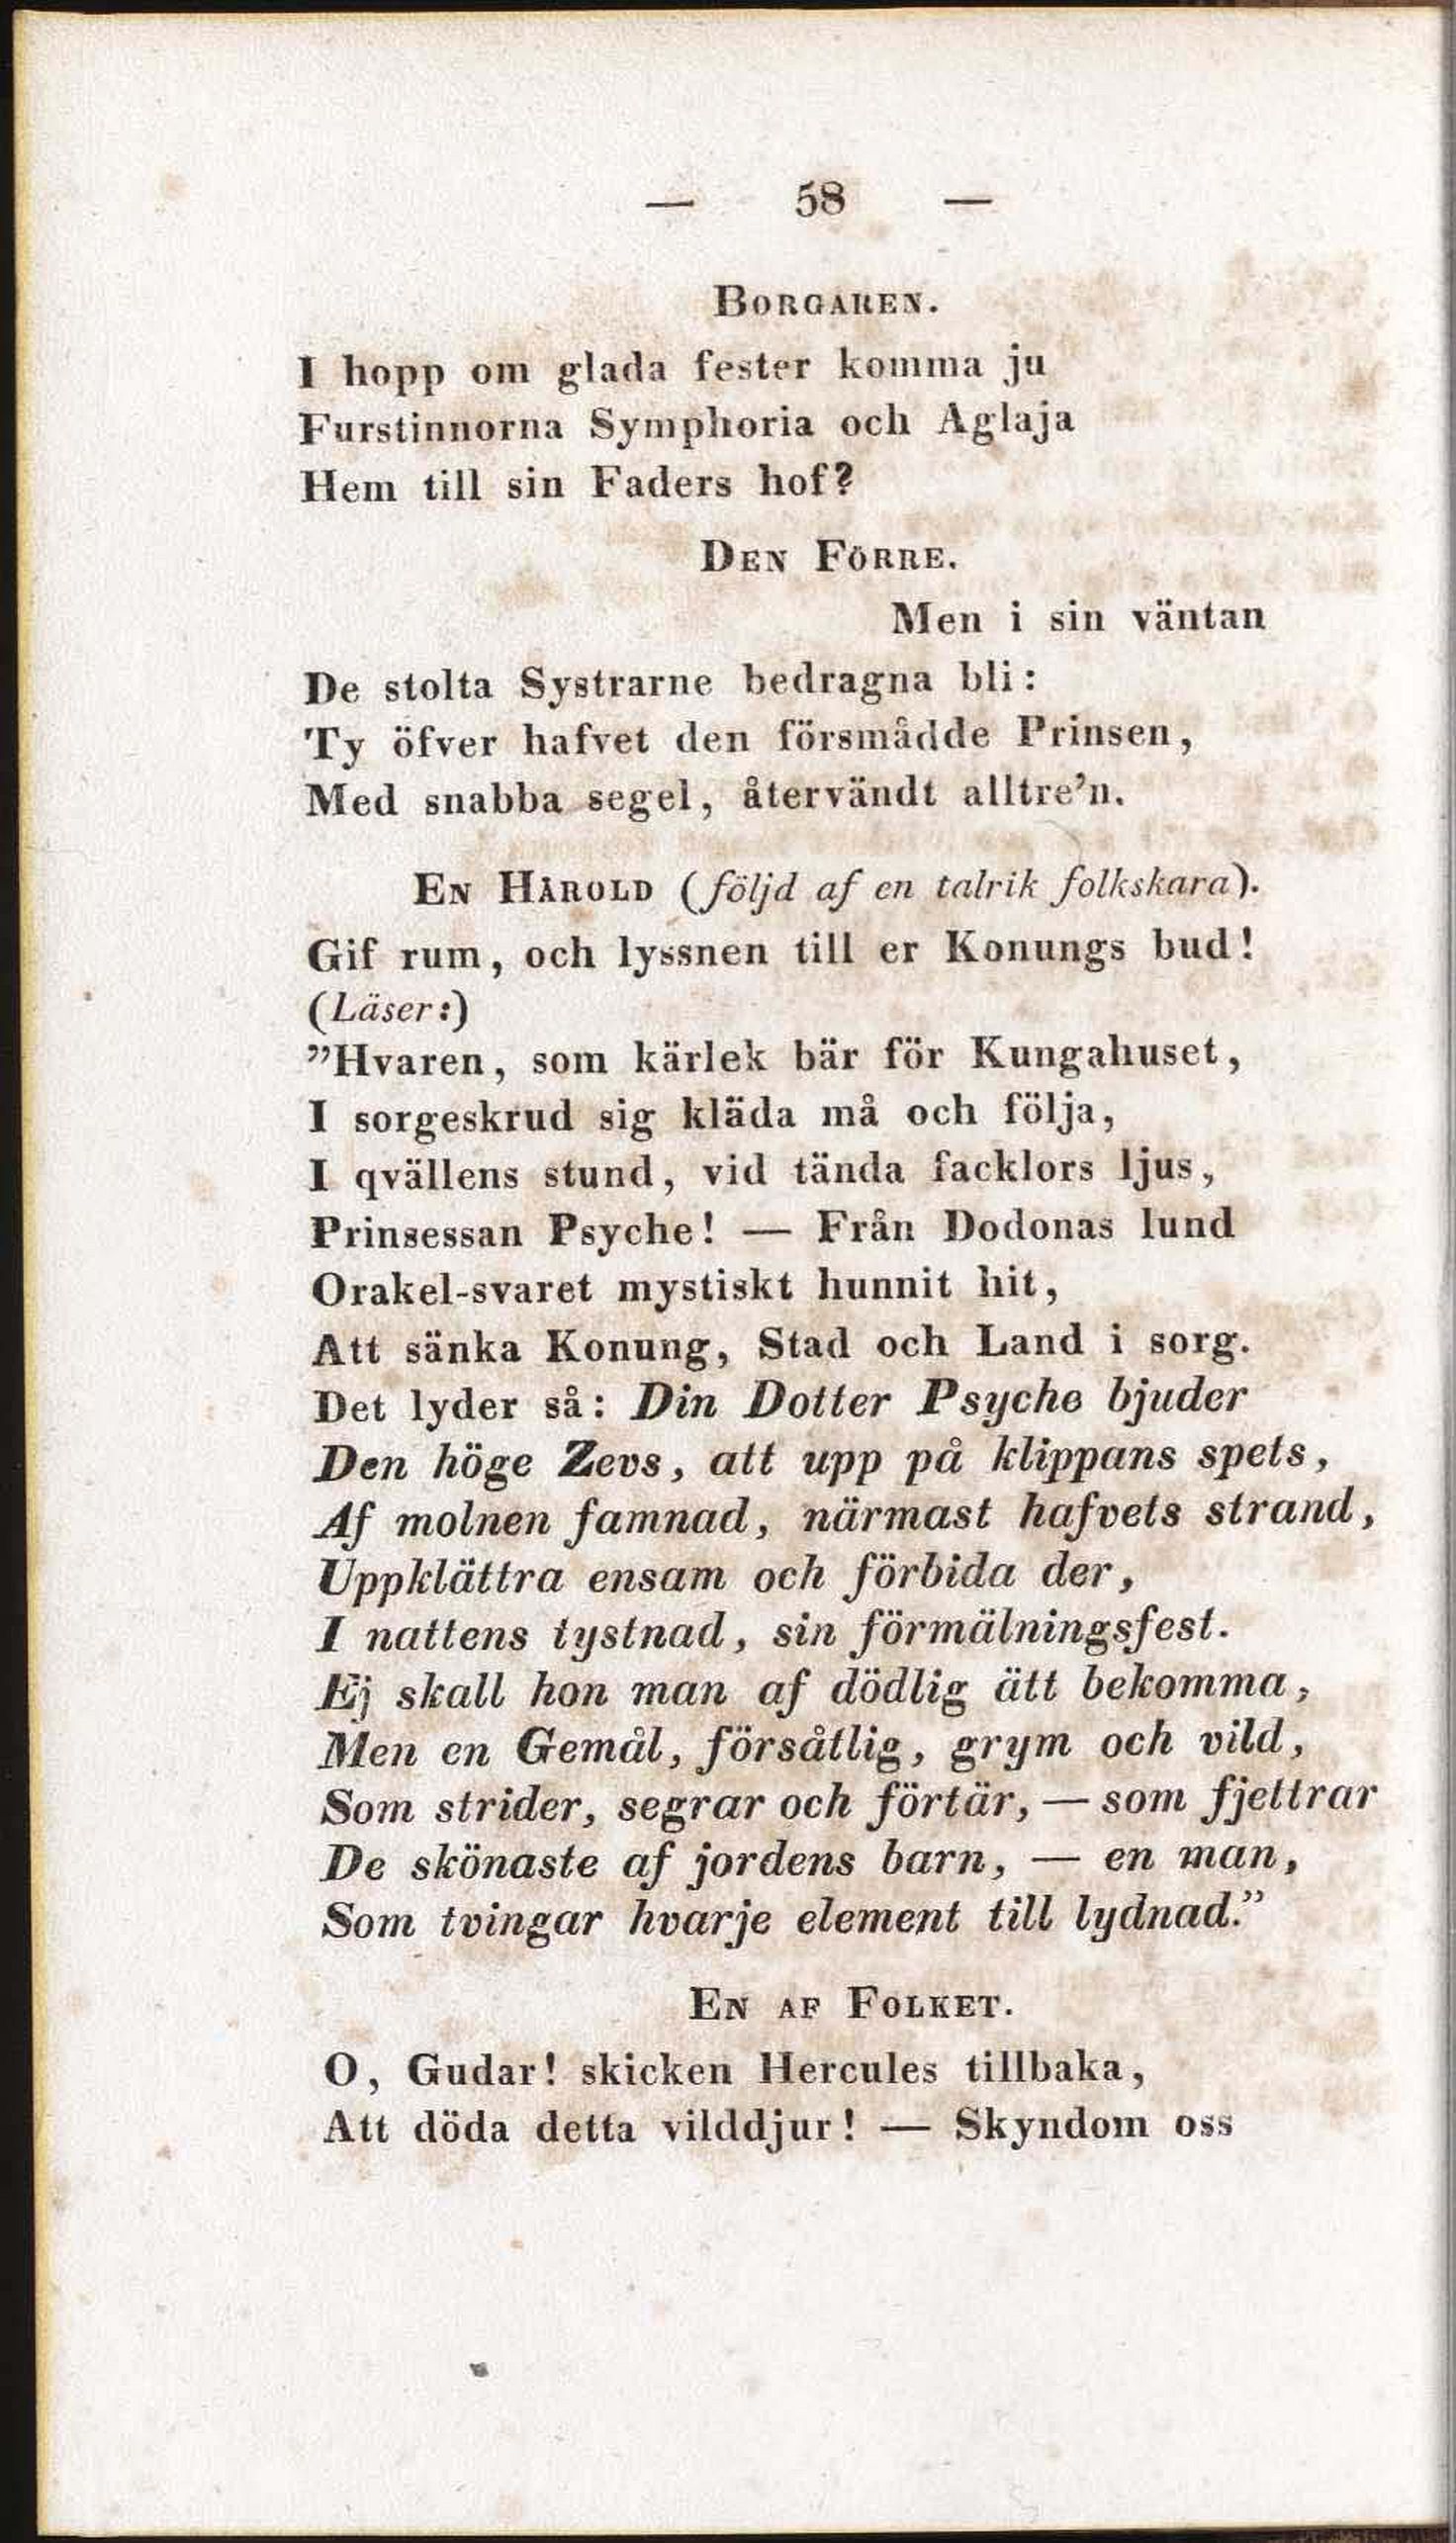 — 58 —
BORGAREN.
I hopp om glada fester komma ju
Furstinnorna Symphoria och Aglaja
Hem till sin Faders hof?
DEN FÖRRE.
Men i sin väntan
De stolta Systrarne bedragna bli:
Ty öfver hafvet den försmådde Prinsen,
Med snabba segel, återvändt alltre'n.
EN HÄROLD (följd af en talrik folkskara).
Gif rum, och lyssnen till er Konungs bud!
(Läser:)
”Hvaren, som kärlek bär för Kungahuset,
I sorgeskrud sig kläda må och följa,
I qvällens stund, vid tända facklors ljus,
Prinsessan Psyche! — Från Dodonas lund
Orakel-svaret mystiskt hunnit hit,
Att sänka Konung, Stad och Land i sorg.
Det lyder så: Din Dotter Psyche bjuder
Den höge Zevs, att upp på klippans spets,
Af molnen famnad, närmast hafvets strand,
Uppklättra ensam och förbida der,
I nattens tystnad, sin förmälningsfest.
Ej skall hon man af dödlig ätt bekomma,
Men en Gemål, försåtlig, grym och vild,
Som strider, segrar och förtär, — som fjettrar
De skönaste af jordens barn, — en man,
Som tvingar hvarje element till lydnad.”
EN AF FOLKET.
O, Gudar! skicken Hercules tillbaka,
Att döda detta vilddjur! — Skyndom oss